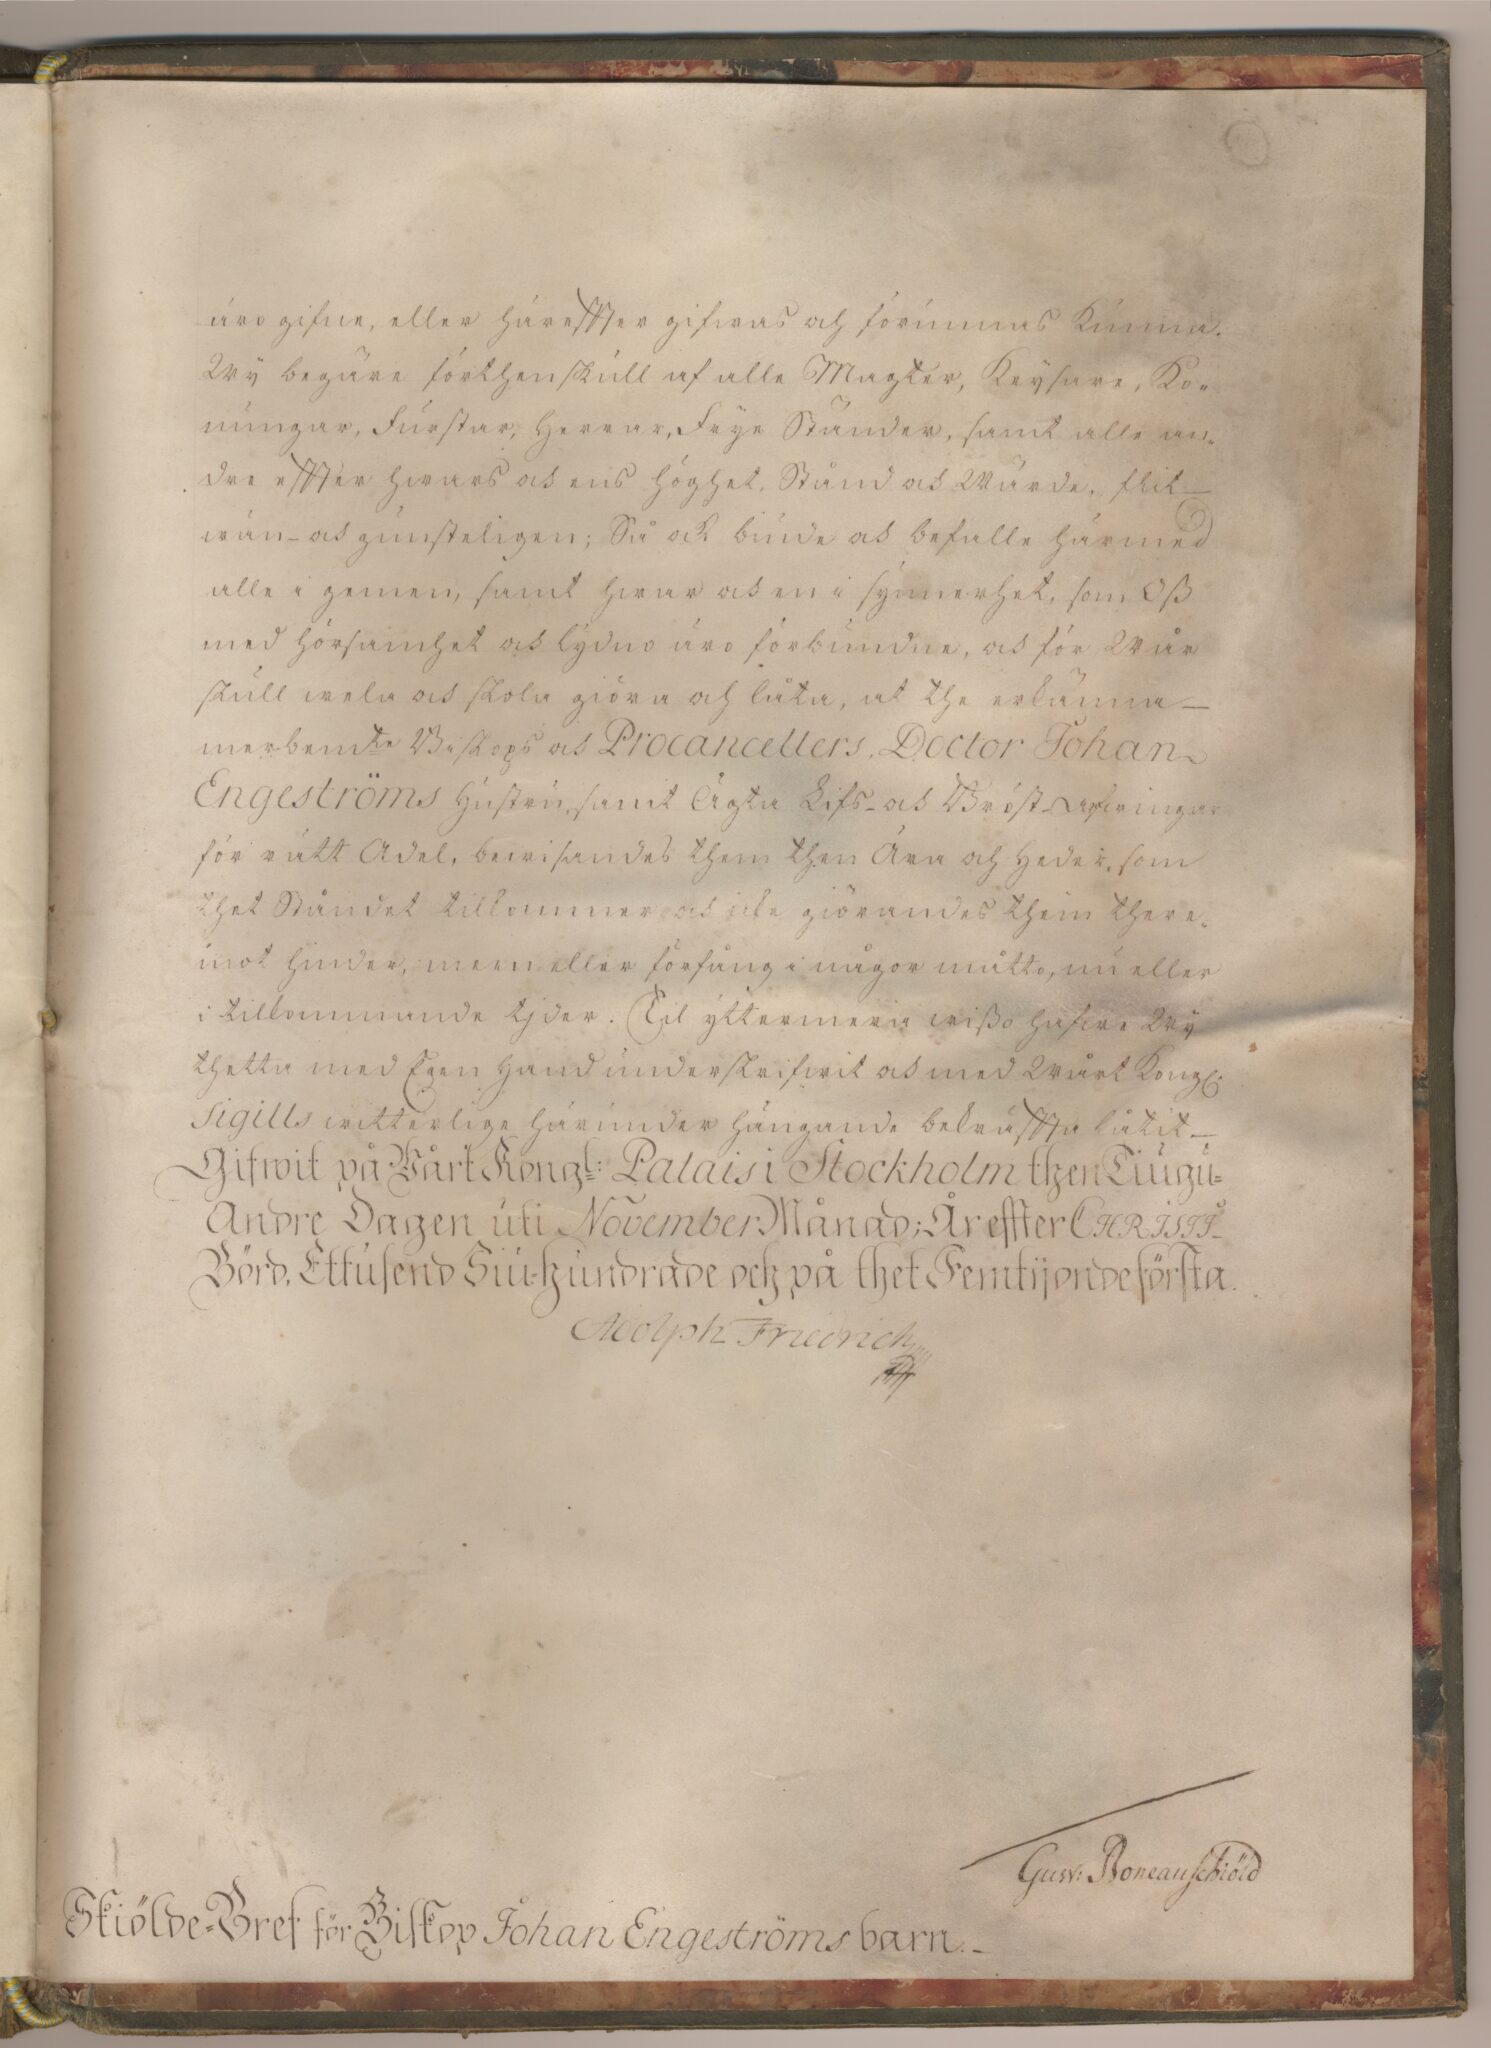 äro gifne, eller häreffter gifwas och förunnas kunna.
Wÿ begäre förthenskull af alle Magter, Keÿsare, Ko-
nungar, Furstar, Herrar, Frÿe Ständer, samt alle an-
dre effter hwars och ens höghet, Stånd och Wärde, flit-
wän- och gunsteligen; Så ock biude och befalle härmed
alle i gemen, samt hwar och en i sÿnnerhet, som Oß
med hörsamhet och lÿdno äro förbundne, och för Wår
skull wela och skola giöra och låta, at the erkänna
merbemte Biskops och Procancellers, Doctor Johan
Engeströms Hustru, samt Ägta Lifs- och Bröst-arfwingar
för rätt Adel, bewisandes them then Ära och Heder, som
thet Ståndet tillkommer och icke giörandes them there-
mot hinder, meen eller förfång i någor måtto, nu eller
i tillkommande tÿder. Til ÿttermera wißo hafwe Wÿ
thetta med Egen Hand underskrifwit och med Wårt Kongl:
Sigills witterlige härunder hängande bekräffta låtit
Gifwit på Wårt Kongl: Palais i Stockholm then Tiugu-
Andre Dagen uti November Månad; År effter CHRISTI
Börd, Ettusend Siuhundrade och på thet Femtijonde första.
Adolph Friedrich
Gust: Boneauschiöld
Skiölde-Bref för Biskop Johan Engeströms barn.